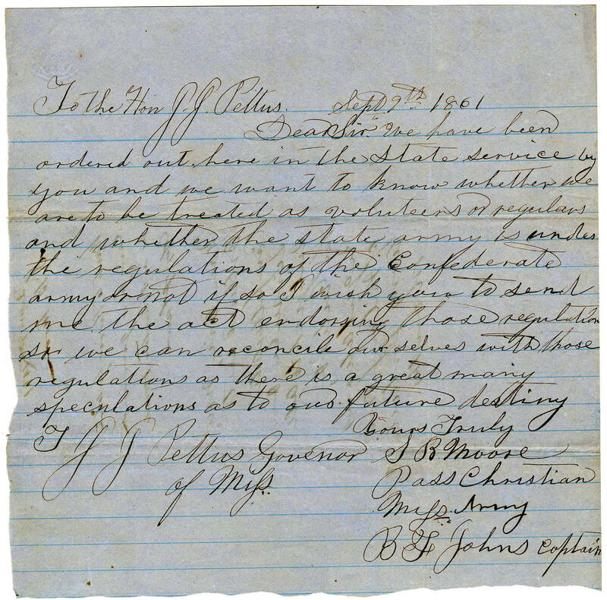 To the Hon J. J. Pettus. Sept 9th 1861
Dear Sir. We have been
ordered out here in the State service by
you and we want to know whether we
are to be treated as volunteers or regulars
and whether the state army is under
the regulations of the Confederate
army or not if so I wish you to send
me the act endorsing those regulation
so we can reconcile our selves with those
regulations as there is a great many
speculations as to our future destiny
Yours Truly
T J J Pettus Govenor S R Moore
of Miss. Pass Christian
Miss. Army
B F Johns Captain